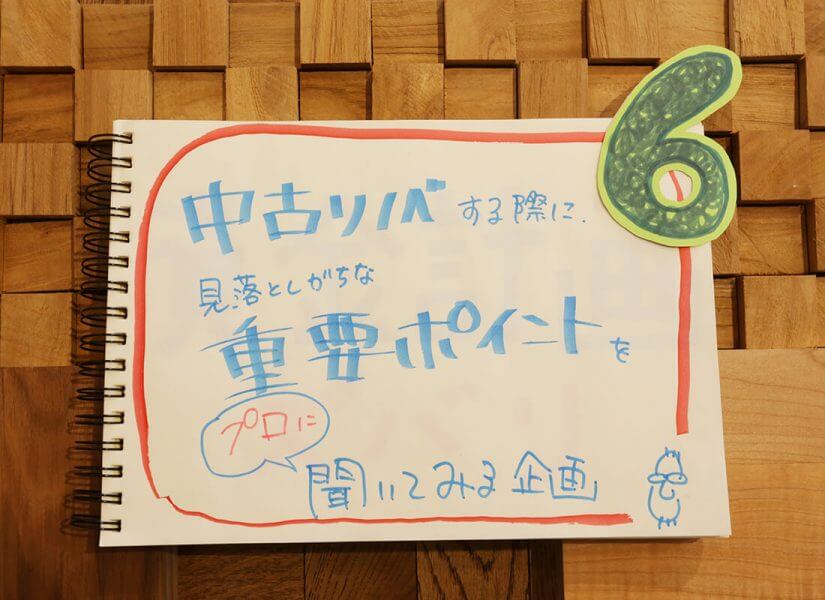 6
中古リノベする際に.
見落としがちな
重要ポイントを
プロに
聞いてみる企画